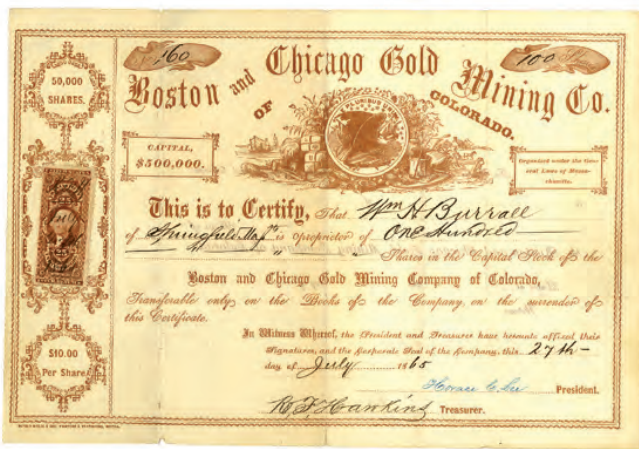 160
100
Boston and Chicago Gold Mining Co.
OF COLORADO.
50,000
SHARES.
E PLURIBUS UNUM
CAPITAL,
$500,000.
Organized under the Gen-
eral Laws of Massa-
chusetts.
This is to Certify, That Wm H Burrall
of Springfield Mass is Proprietor of One Hundred
Shares in the Capital Stock of the
Boston and Chicago Gold Mining Company of Colorado,
Transferable only on the Books of the Company, on the surrender of
this Certificate.
In Witness Whereof, the President and Treasurer have hereunto affixed their
Signatures, and the Corporate Seal of the Company, this 27th
day of July 1865
Horace C. Lee President.
Treasurer.
$10.00
Per Share.